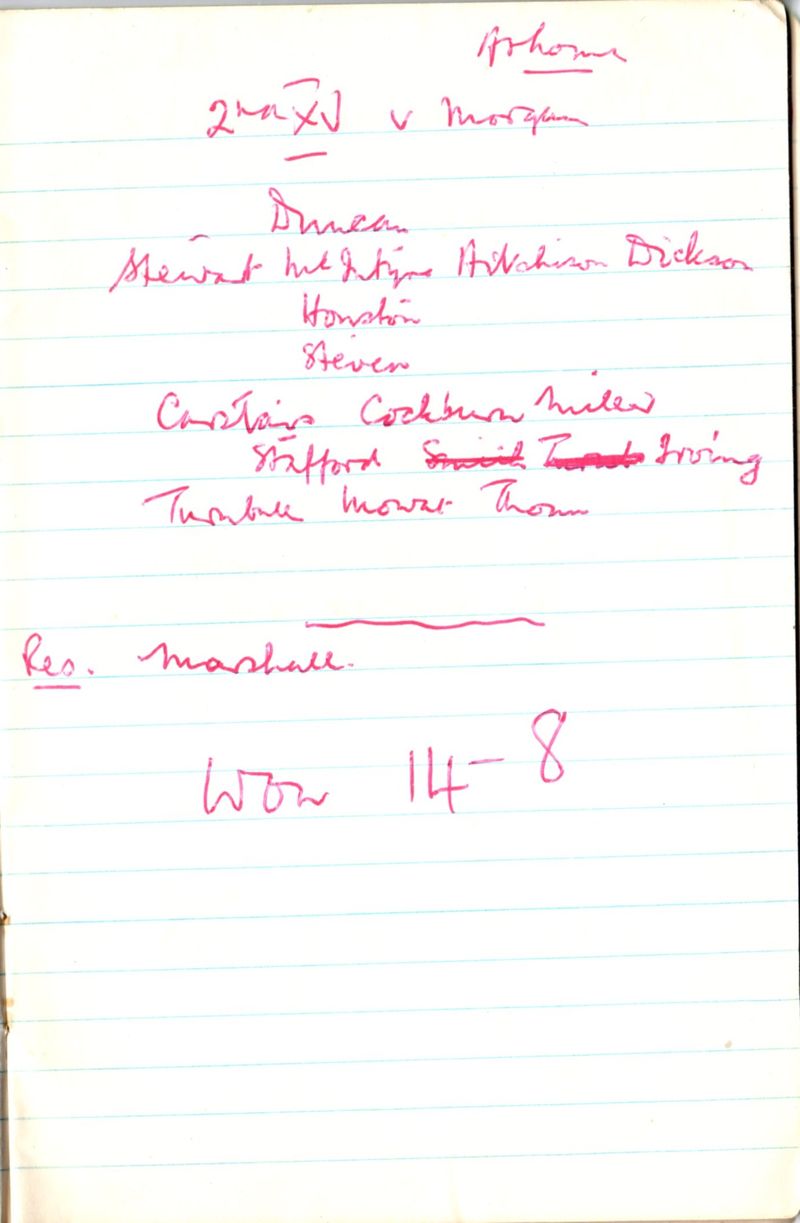 At home
2nd XV v Morgan
Duncan
Stewart McIntyre Aitchison Dickson
Houston
Steven
Carstairs Cockburn Miller
Stafford Smith Irving
Turnbull Mowat Thom
Res. Marshall.
Won 14-8